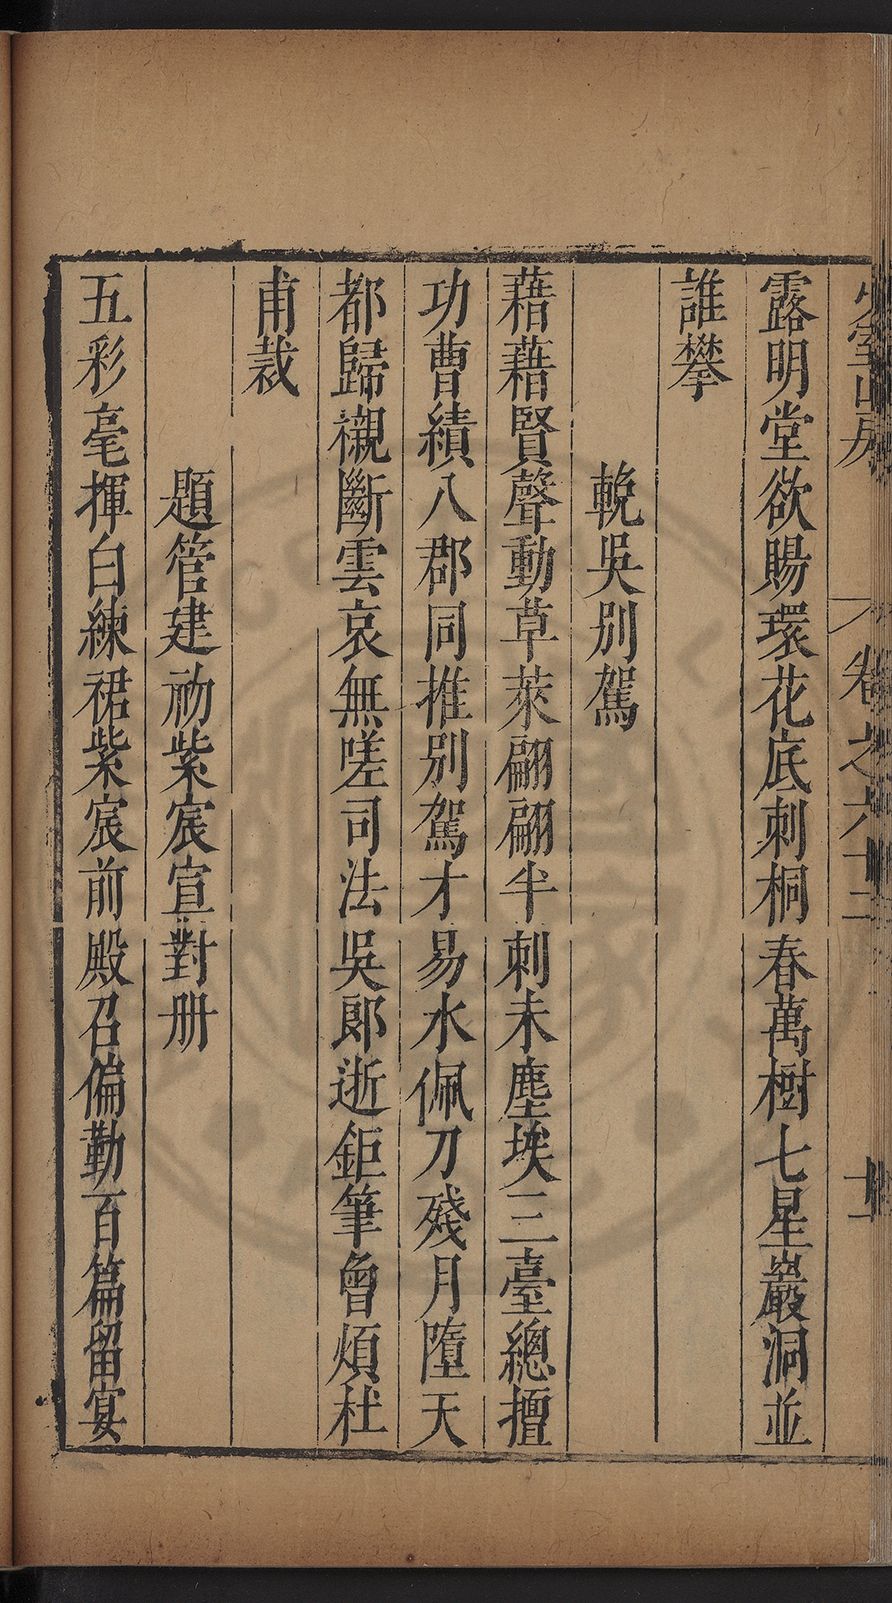 少室山房 卷之六十二 十一
露明堂欲賜環花底刺桐春萬樹七星巖洞並
誰攀
輓吳别駕
藉藉賢聲動草萊翩翩半刺未塵埃三臺總擅
功曹績八郡同推别駕才易水佩刀殘月墮天
都歸襯斷雲哀無嗟司法吳郎逝鉅筆曾煩杜
甫裁
題管建初紫宸宣對册
五彩毫揮白練裙紫宸前殿召偏勤百篇留宴